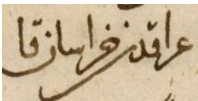 عراقدن خراسان قا